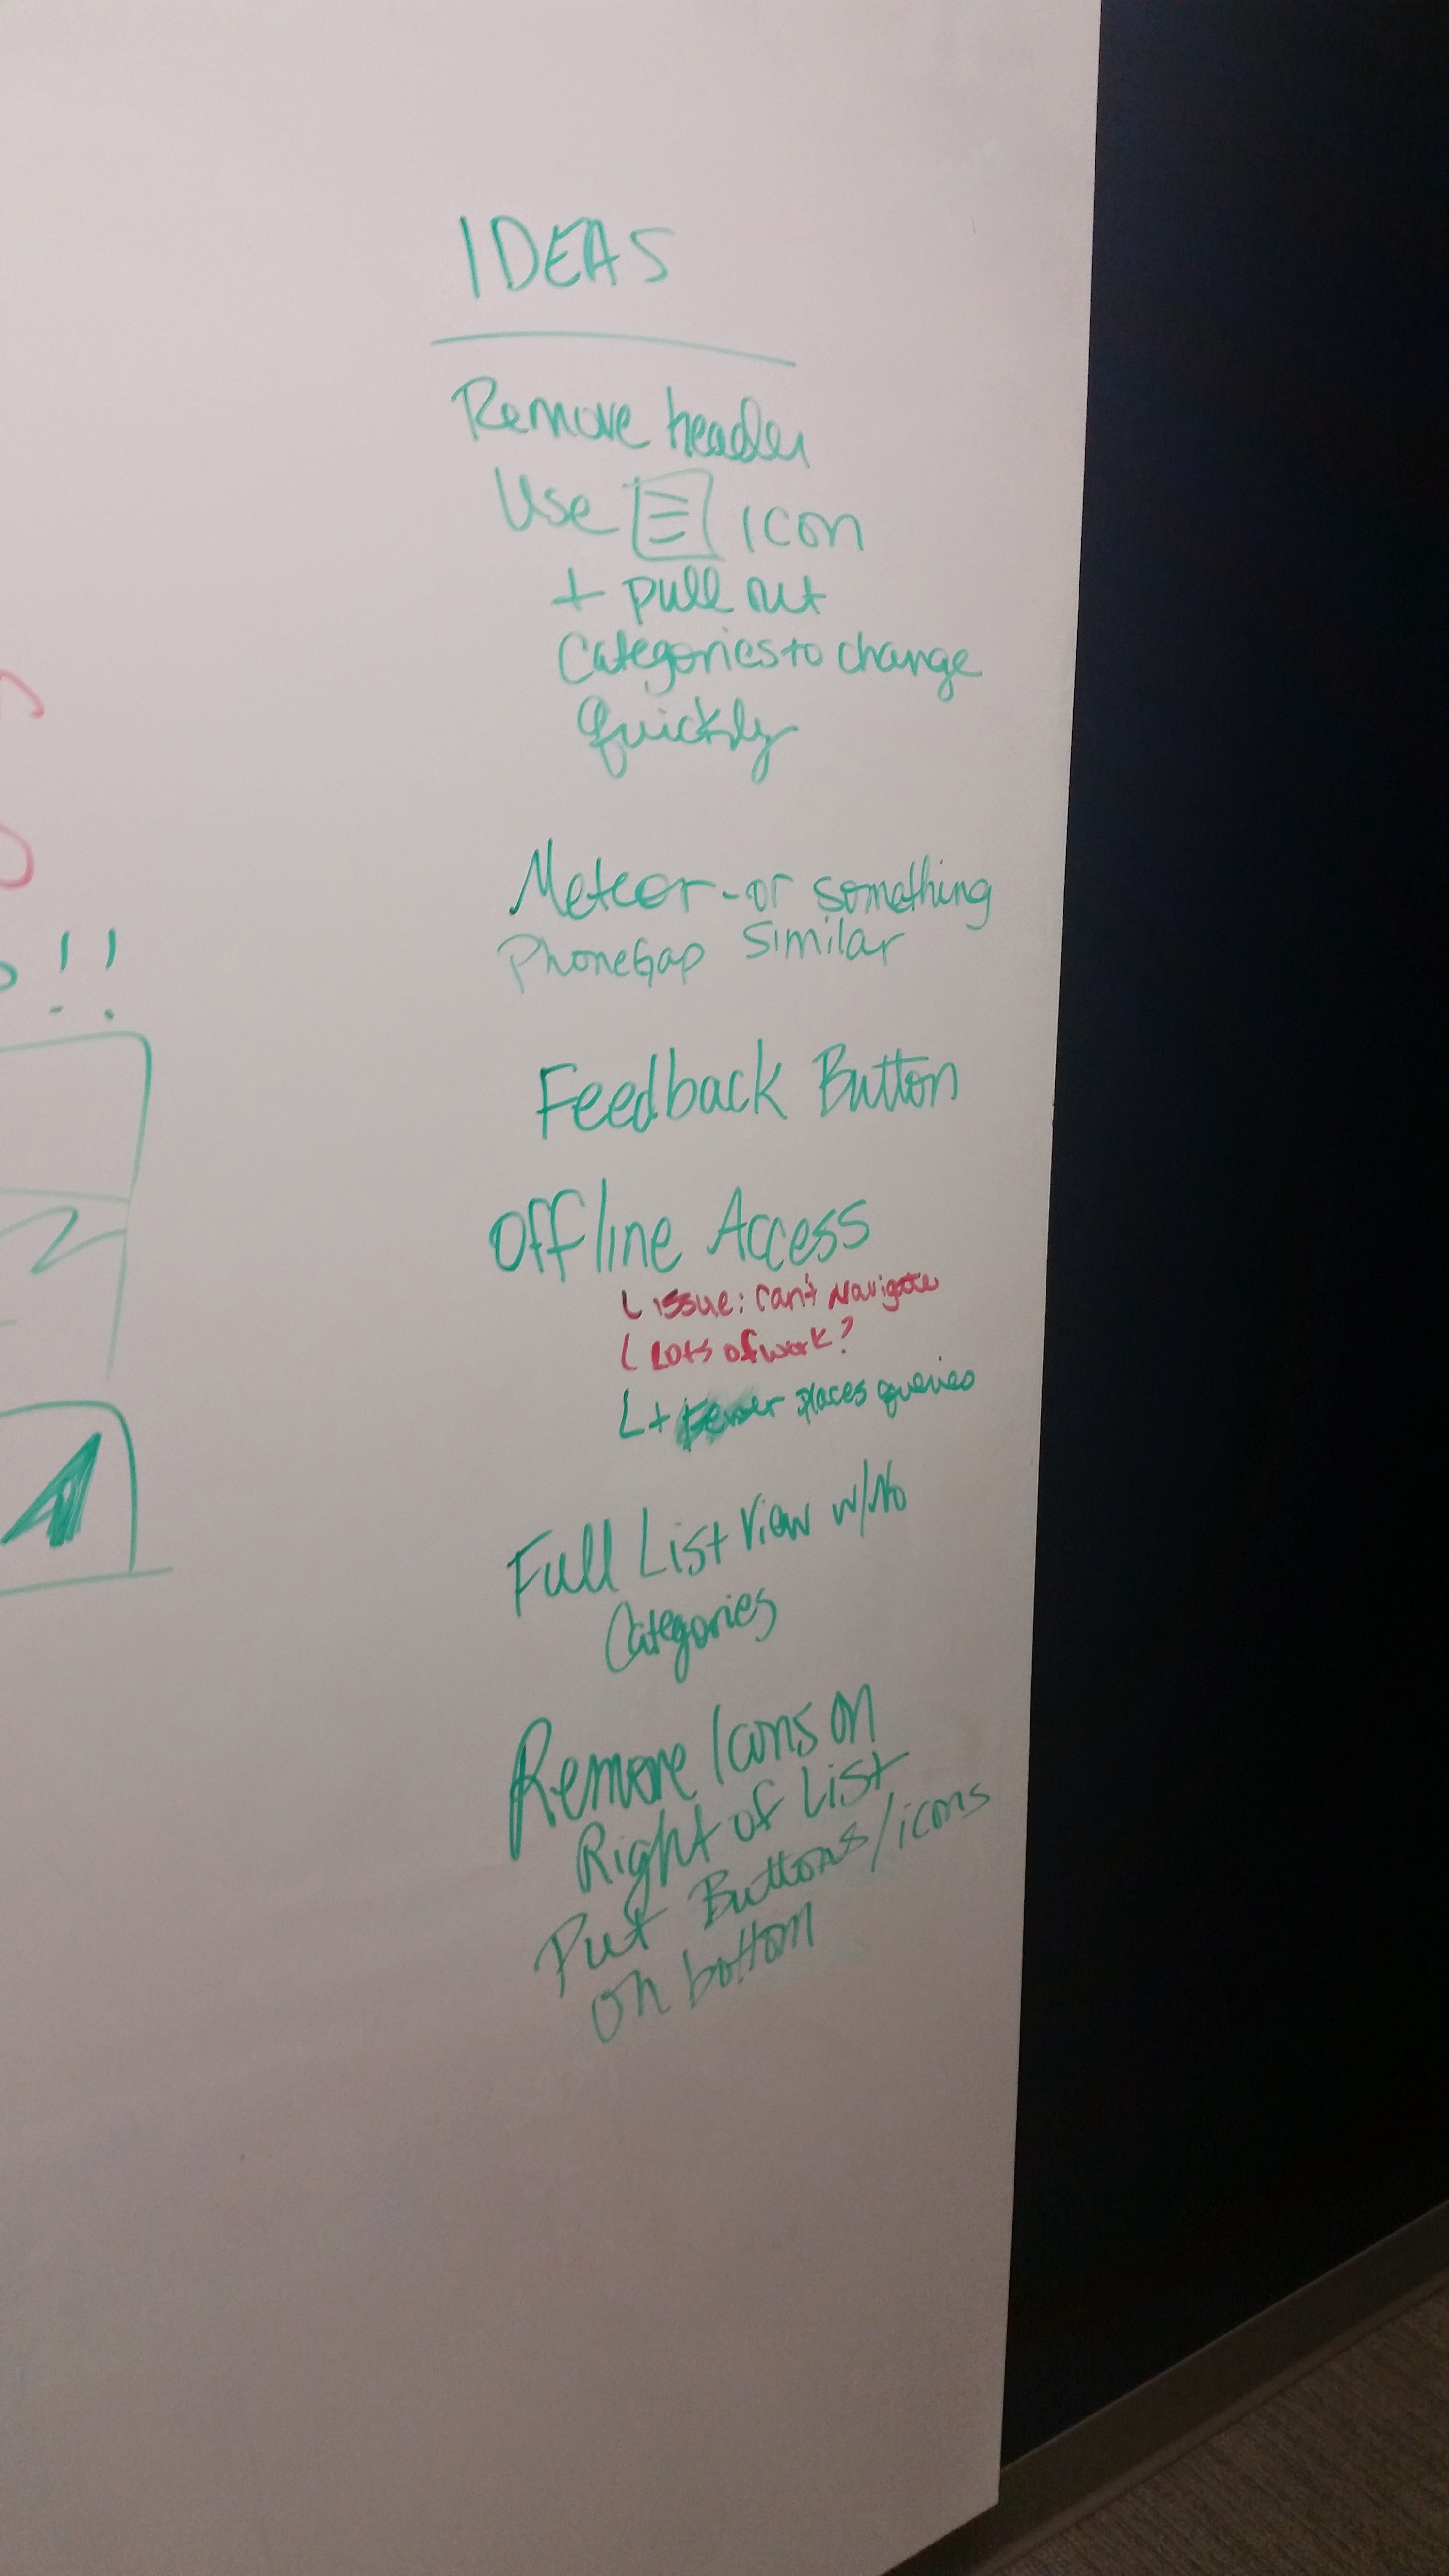 IDEAS
Remove header
Use icon
+ pull out
Categories to change
Quickly
Meteor - or something
PhoneGap similar
Feedback Button
Offline Access
issue: can't Navigate
Lots of work?
+ Fewer places queries
Full List View w/No
Categories
Remove Icons on
Right of List
Put Buttons/icons
on bottom
!!